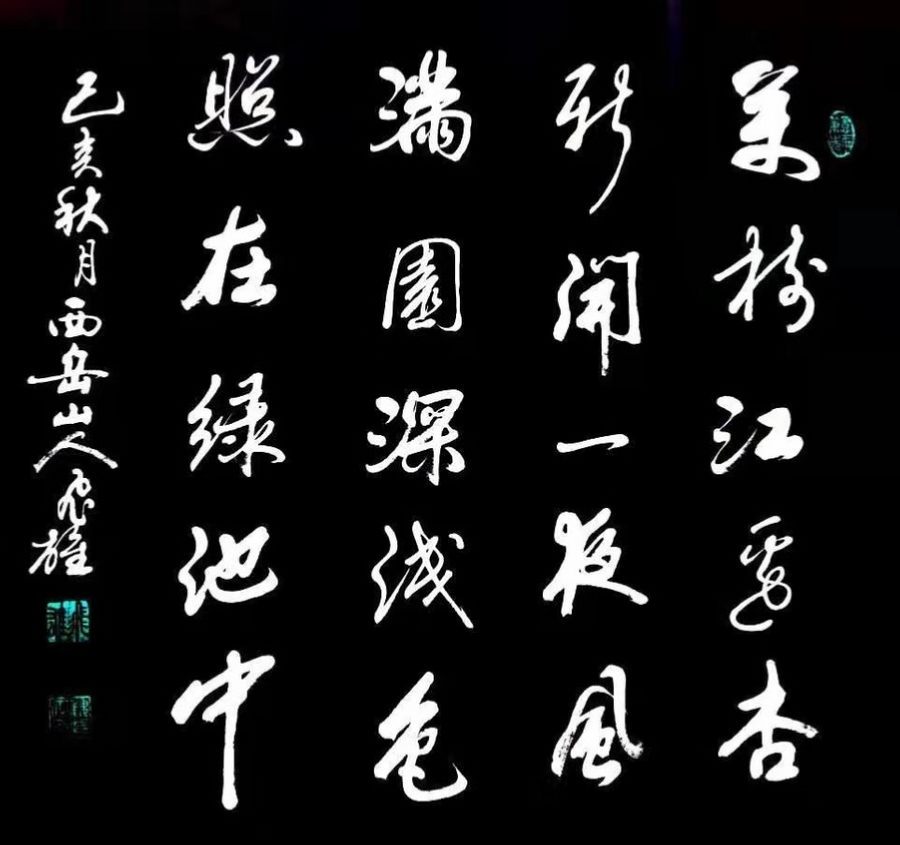 萬樹江邊杏
新開一夜風
滿園深淺色
照在綠池中
己亥秋月西岳山人飛雄